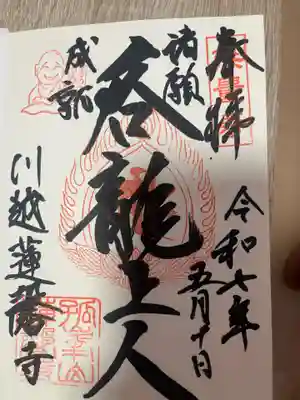 奉拝
令和七年
五月十日
諸願
成就
呑龍上人
川越蓮馨寺